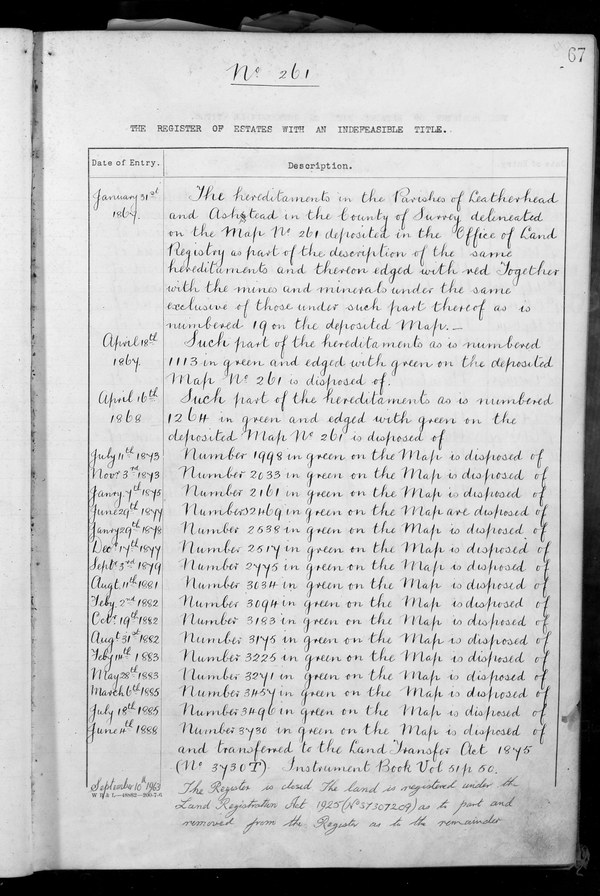 67
No 261
THE REGISTER OF ESTATES WITH AN INDEFEASIBLE TITLE.
Date of Entry. Description.
January 31st The hereditaments in the Parishes of Leatherhead
1867. and Ashstead in the County of Surrey delineated
on the Map No 261 deposited in the Office of Land
Registry as part of the description of the same
hereditaments and thereon edged with red Together
with the mines and minerals under the same
exclusive of those under such part thereof as is
numbered 19 on the deposited Map.—
April 18th Such part of the hereditaments as is numbered
1867 1113 in green and edged with green on the deposited
Map No 261 is disposed of.
April 16th Such part of the hereditaments as is numbered
1868 1264 in green and edged with green on the
deposited Map No 261 is disposed of
July 11th 1873 Number 1998 in green on the Map is disposed of
Novr 3rd 1873 Number 2033 in green on the Map is disposed of
Janry 7th 1875 Number 2161 in green on the Map is disposed of
June 29th 1877 Numbers 2469 in green on the Map are disposed of
Janry 29th 1878 Number 2538 in green on the Map is disposed of
Decr 17th 1877 Number 2517 in green on the Map is disposed of
Septr 3rd 1879 Number 2775 in green on the Map is disposed of
Augt 11th 1881 Number 3034 in green on the Map is disposed of
Feby 2nd 1882 Number 3094 in green on the Map is disposed of
Octr 19th 1882 Number 3183 in green on the Map is disposed of
Augt 31st 1882 Number 3175 in green on the Map is disposed of
Feby 14th 1883 Number 3225 in green on the Map is disposed of
May 28th 1883 Number 3271 in green on the Map is disposed of
March 6th 1885 Number 3457 in green on the Map is disposed of
July 18th 1885 Number 3496 in green on the Map is disposed of
June 4th 1888 Number 3730 in green on the Map is disposed of
and transferred to the Land Transfer Act 1875
(No 3730T) Instrument Book Vol 51 p 50.
September 10th 1963 The Register is closed The land is registered under the
Land Registration Act 1925 as to part and
removed from the Register as to the remainder